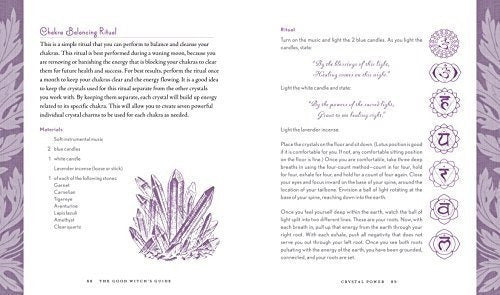 Chakra Balancing Ritual
This is a simple ritual that you can perform to balance and cleanse your
chakras. This ritual is best performed during a waning moon, because you
are removing or banishing the energy that is blocking your chakras to clear
them for future health and success. For best results, perform the ritual once
a month to keep your chakras clear and the energy flowing. It is a good idea
to keep the crystals used for this ritual separate from the other crystals
you work with. By keeping them separate, each crystal will build up energy
related to its specific chakra. This will allow you to create seven powerful
individual crystal charms to be used for each chakra as needed.
Materials
Soft instrumental music
2 blue candles
1 white candle
Lavender incense (loose or stick)
1 of each of the following stones:
Garnet
Carnelian
Tigereye
Aventurine
Lapis lazuli
Amethyst
Clear quartz
88 THE GOOD WITCH'S GUIDE
Ritual
Turn on the music and light the 2 blue candles. As you light the
candles, state:
"By the blessings of this light,
Healing comes on this night."
Light the white candle and state:
"By the powers of the sacred light,
Grant to me healing right."
Light the lavender incense.
Place the crystals on the floor and sit down. (Lotus position is good
if it is comfortable for you. If not, any comfortable sitting position
on the floor is fine.) Once you are comfortable, take three deep
breaths in using the four-count method—count in for four, hold
for four, exhale for four, and hold for a count of four again. Close
your eyes and focus inward on the base of your spine, around the
location of your tailbone. Envision a ball of light rotating at the
base of your spine, reaching down into the earth.
Once you feel yourself deep within the earth, watch the ball of
light split into two different lines. These are your roots. Now, with
each breath in, pull up that energy from the earth through your
right root. With each exhale, push all negativity that does not
serve you out through your left root. Once you see both roots
pulsating with the energy of the earth, you have been grounded,
connected, and your roots are set.
CRYSTAL POWER 89
ॐ
हं
यं
रं
वं
लं